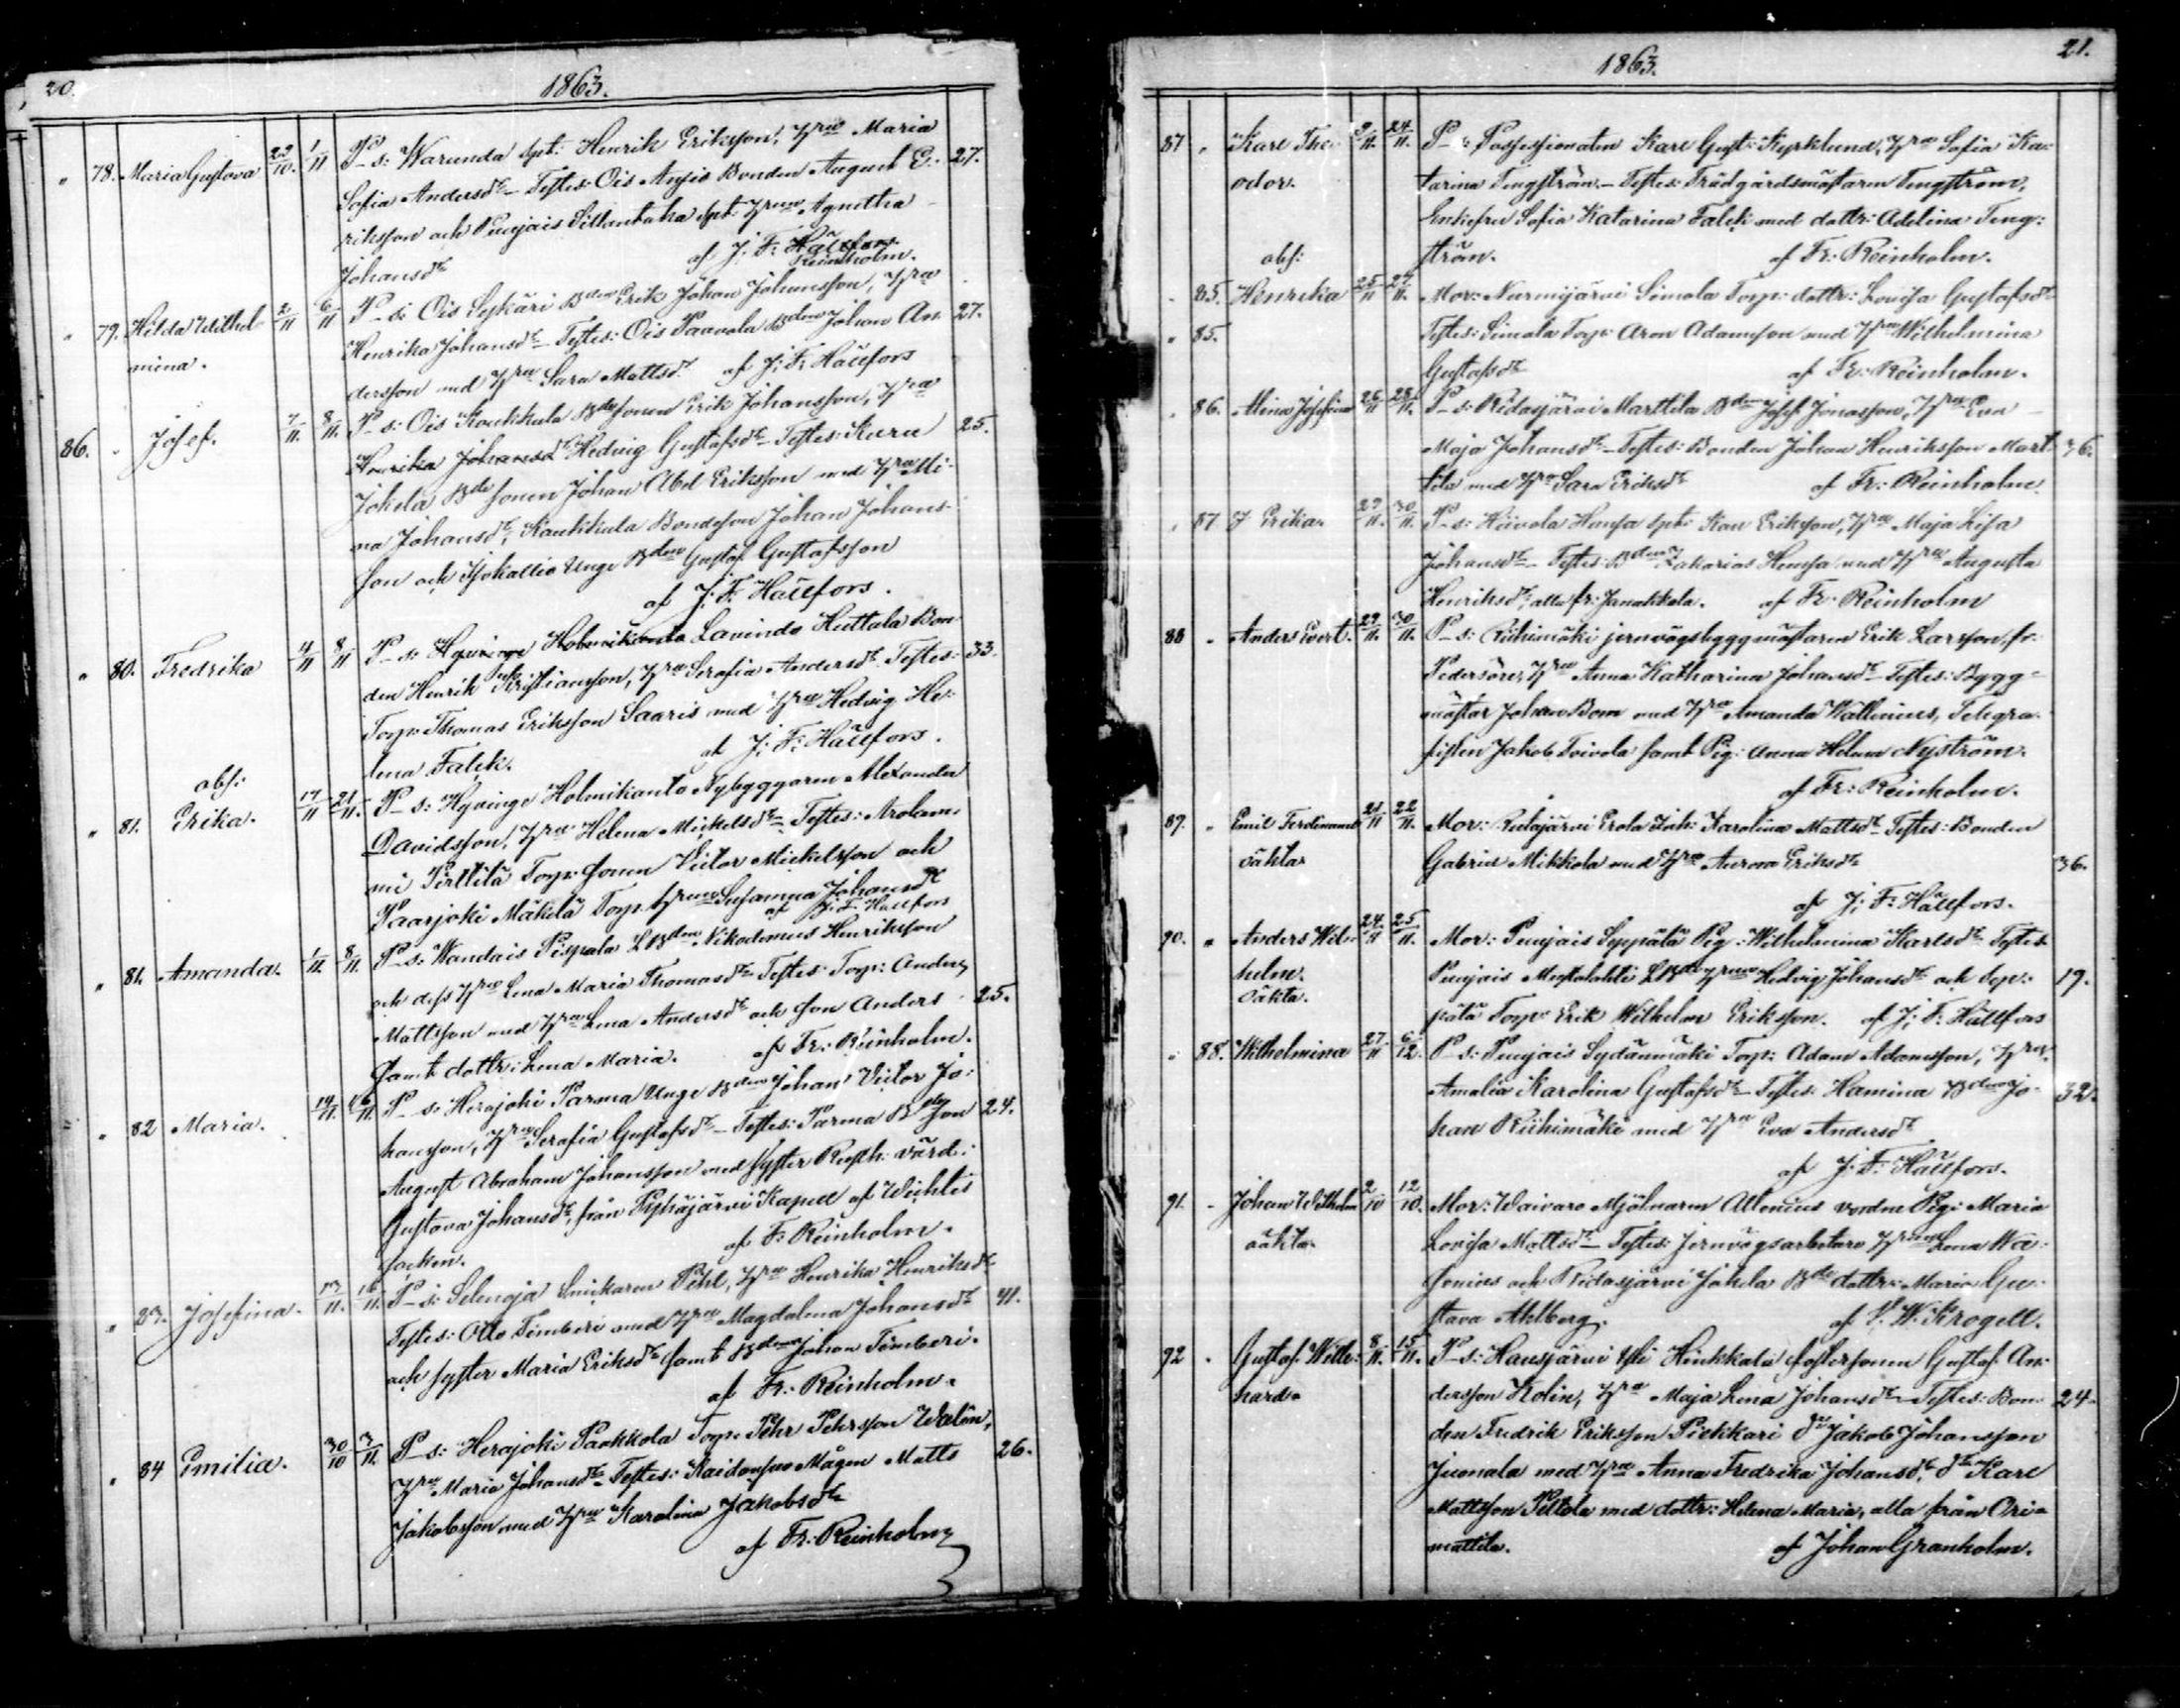 20.
1863.
" 78. Maria Gustava 29/10. 1/11 P_s: Warunda spt: Henrik Eriksson, Hru Maria
Sofia Andersdr _ Testes: Ois Anjio Bonden August E- 27.
riksson och Puujais Sillantaka spt: Hrun Agnetha
Johansdr af J. F. Hällfors.
Reinholm.
" 79. Hilda Wilhel- 2/11 6/11 P_s: Ois Sykäri Bden Erik Johan Johansson, Hru
mina. Henrika Johansdr _ Testes: Ois Paavola Bden Johan An- 27.
dersson med Hru Sara Mattsdr af J. F. Hällfors
86. " Josef. 7/11. 8/11. P_s: Ois Kaukkala Bdesonen Erik Johansson, Hru
Henrika Johansdr Hedvig Gustafsdr _ Testes: Kuru 25.
Jokela Bde sonen Johan Abel Eriksson med Hru Mi-
na Johansdr, Kaukkala Bondeson Johan Johans-
son och Isokallio Unge Bden Gustaf Gustafsson
af J. F. Hällfors.
" 80. Fredrika 4/11 8/11 P_s: Hyvinge Holmikanta Lavinda Huttala Bon-
den Henrik Kristiansson, Hru Serafia Andersdr Testes: 33.
Torp: Thomas Eriksson Saaris med Hru Hedvig He-
lena Falck. af J. F. Hällfors.
obs:
" 81. Erika. 17/11 21/11. P_s: Hyvinge Holmikanta Nybyggaren Alexander
Davidsson, Hru Helena Mickelsdr Testes: Arolam-
mi Pirttilä Torp: sonen Victor Mickelsson och
Paarjoki Mäkelä Torp. Hrun Susanna Johansdr
af J. F. Hällfors
" 81. Amanda. 1/11. 8/11. P_s: Wandais Pispala LBden Nikodemus Henriksson
och dess Hru Lena Maria Thomasdr Testes: Torp: Anders
Mattsson med Hru Lena Andersdr och son Anders 25.
samt dottr: Lena Maria. af Fr. Reinholm.
" 82 Maria. 14/11. 16/11. P_s: Herajoki Parma Unge Bden Johan Victor Jo-
hansson, Hru Serafia Gustafsdr _ Testes: Parma Bdeson 24.
August Abraham Johansson med syster Rusth: värd:
Gustava Johansdr, från Pyhäjärvi Kapell af Wichtis
socken. af F. Reinholm.
" 83. Josefina. 13/11. 16/11. P_s: Selenoja Snickaren Pihl, Hru Henrika Henriksdr
Testes: Otto Timberi med Hru Magdalena Johansdr 41.
och syster Maria Eriksdr samt Bden Johan Timberi.
af Fr. Reinholm.
" 84 Emilia. 30/10 3/11. P_s: Herajoki Paokkola Torp: Pehr Pehrsson Walin,
Hru Maria Johansdr Testes: Mågen Matts 26.
Jakobsson med Hru Karolina Jakobsdr
af Fr. Reinholm
1863.
21.
87 " Karl The- 9/11. 24/11. P_s: Possessionaten Karl Gust: Kyrklund, Hru Sofia Ka-
odor. tarina Tengström _ Testes: Trädgårdsmästaren Tengström,
Enkefru Sofia Katarina Falck med dottr: Adelina Teng-
obs: ström. af Fr. Reinholm.
" 85. Henrika 25/11 27/11. Mor: Nurmijärvi Simola Torp: dottr: Lovisa Gustafsdr
" 85. Testes: Simola Torp: Aron Adamsson med Hru Wilhelmina
Gustafsdr af Fr. Reinholm.
" 86. Alina Josefina 26/11 28/11. P_s: Ridasjärvi Marttila Bden Josef Jonasson, Hru Eva
Maja Johansdr _ Testes: Bonden Johan Henriksson Mart- 36.
tila med Hru Sara Eriksdr af Fr. Reinholm.
" 87 J Erika. 29/11. 30/11. P_s: Hausa spt: Karl Eriksson, Hru Maja Lisa
Johansdr _ Testes: Bden Zakarias Hausa med Hru Augusta
Henriksdr, alla fr: Janakkala. af Fr. Reinholm
88 " Anders Evert. 29/11. 30/11. P_s: Riihimäki jernvägsbyggmästaren Erik Larsson fr:
Pedersöre, Hru Anna Katharina Johansdr _ Testes: Bygg-
mästar Johan Bom med Hru Amanda Wallenius, Telegra-
fisten Jakob Toivola samt Pig: Anna Helena Nyström.
af Fr. Reinholm.
89. " Emil Ferdinand 21/11 22/11. Mor: Ridasjärvi Erola Inh: Karolina Mattsdr _ Testes: Bonden
oäkta Gabriel Mikkola med Hru Aurora Eriksdr 36.
af J. F. Hällfors.
90. " Anders Wil- 24/11 25/11. Mor: Puujais Seppälä Pig: Wilhelmina Karlsdr Testes
helm. Puujais Mustalahti LBde Hrun Hedvig Johansdr och Sep- 19.
oäkta. pälä Torp: Erik Wilhelm Eriksson. af J. F. Hällfors
" 88. Wilhelmina 27/11 6/12. P_s: Puujais Sydänmäki Torp: Adam Adamsson, Hru
Amalia Karolina Gustafsdr _ Testes: Hamina Bden Jo- 32.
han Riihimäki med Hru Eva Andersdr
af J. F. Hällfors.
91. " Johan Wilhelm 2/10 12/10. Mor: Waivaro Mjölnaren Allenius vordne Pig: Maria
oäkta. Lovisa Mattsdr _ Testes: Jernvägsarbetare Hrun Lena Wa-
sonius och Ridasjärvi Jokela Bde dottr: Maria Gu-
stava Ahlberg. af V. W. Krogell.
92 " Gustaf Wille- 8/11. 15/11. P_s: Hausjärvi Yli Hinkkala fostersonen Gustaf An-
hard. dersson Kolin, Hru Maja Lena Johansdr _ Testes: Bon- 24.
den Fredrik Eriksson Piekkari do Jakob Johansson
Juonala med Hru Anna Fredrika Johansdr, do Karl
Mattsson Peltola med dottr: Helena Maria, alla från Ori-
mattila. af Johan Granholm.